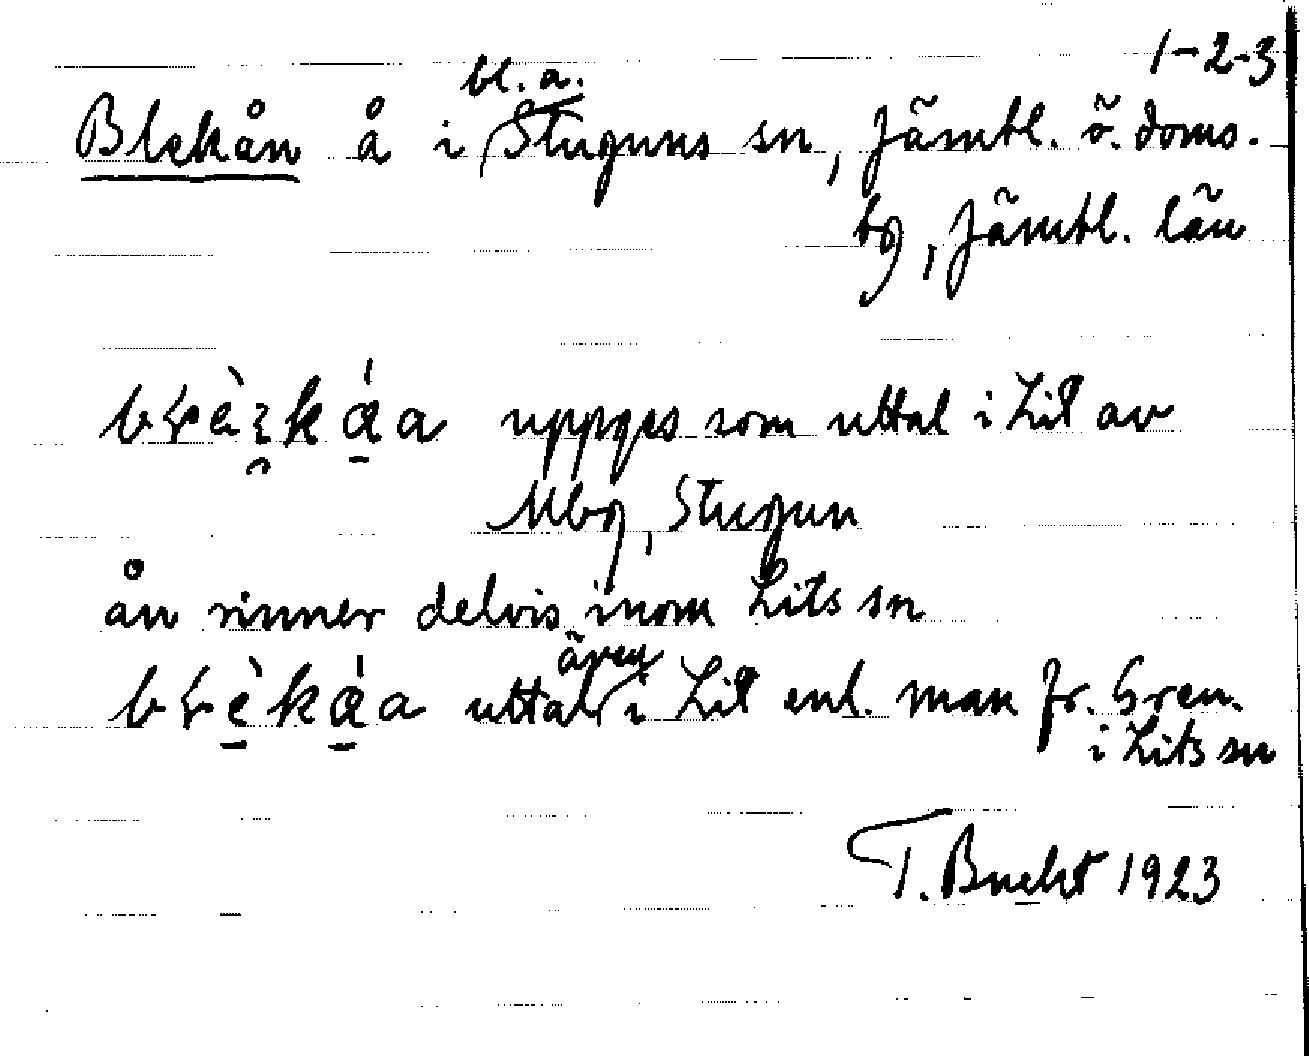 1-2-3
bl. a.
Blekån å i Stuguns sn, Jämtl. ö. doms.
tg, Jämtl. län
uppges som uttal i Lit av
Mbg, Stugun
ån rinner delvis inom Lits sn
även
uttal i Lit enl. man fr. Gren.
i Lits sn
T. Bucht 1923